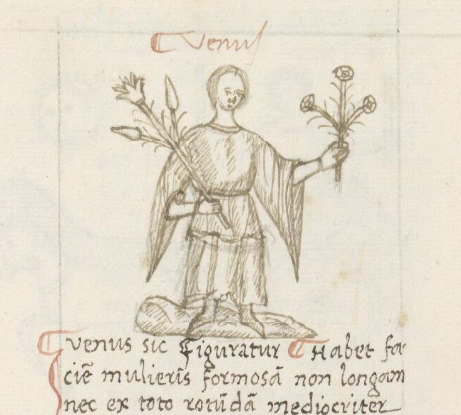 Venus
Venus sic figuratur Habet fa-
ciē mulieris formosā non longam
nec ex toto rotūdā mediocriter